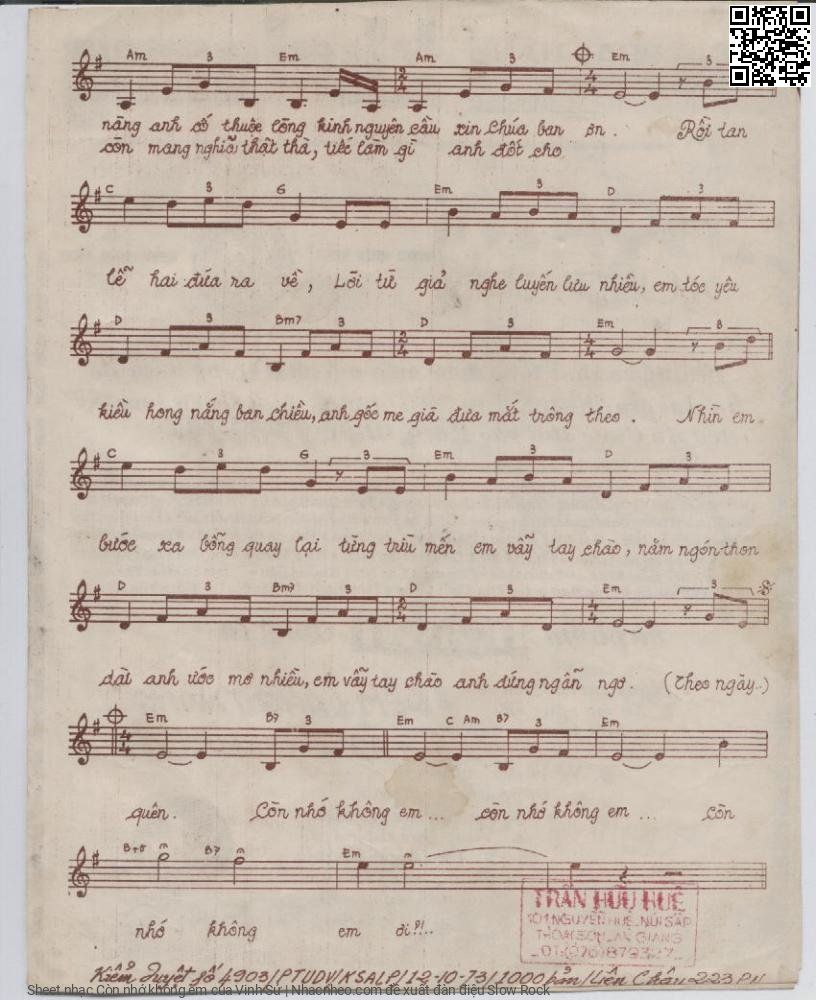 Am 3 Em Am 3 Em 3
nàng anh cố thuộc lòng kinh nguyện cầu xin Chúa ban ơn. Rồi tan
còn mang nghĩa thật thà, tiếc làm gì anh đốt cho
C 3 G Em 3 D 3
lễ hai đứa ra về, Lời từ giả nghe luyến lưu nhiều, em tóc yêu
D 3 Bm7 3 D 3 Em 3
kiều hong nắng ban chiều, anh gốc me già đưa mắt trông theo. Nhìn em
C 3 G 3 Em 3 D 3
bước xa bỗng quay lại từng trìu mến em vẫy tay chào, năm ngón thon
D 3 Bm7 3 D 3 Em 3
dài anh ước mơ nhiều, em vẫy tay chào anh đứng ngẩn ngơ. (Theo ngày..)
Em B7 3 Em C Am B7 3 Em
quên. Còn nhớ không em ... còn nhớ không em ... còn
B+5 B7 Em
nhớ không em ơi?!..
TRẦN HỮU HUỆ
101 NGUYỄN HUỆ - NÚI SẬP
THOẠI SƠN, AN GIANG
Kiểm duyệt số 4903/PTUDV/KSALP/12-10-73/1000 bản/Liên Châu-223 PN
Sheet nhạc Còn nhớ không em của Vinh Sử | Nhacnheo.com đề xuất đàn điệu Slow Rock